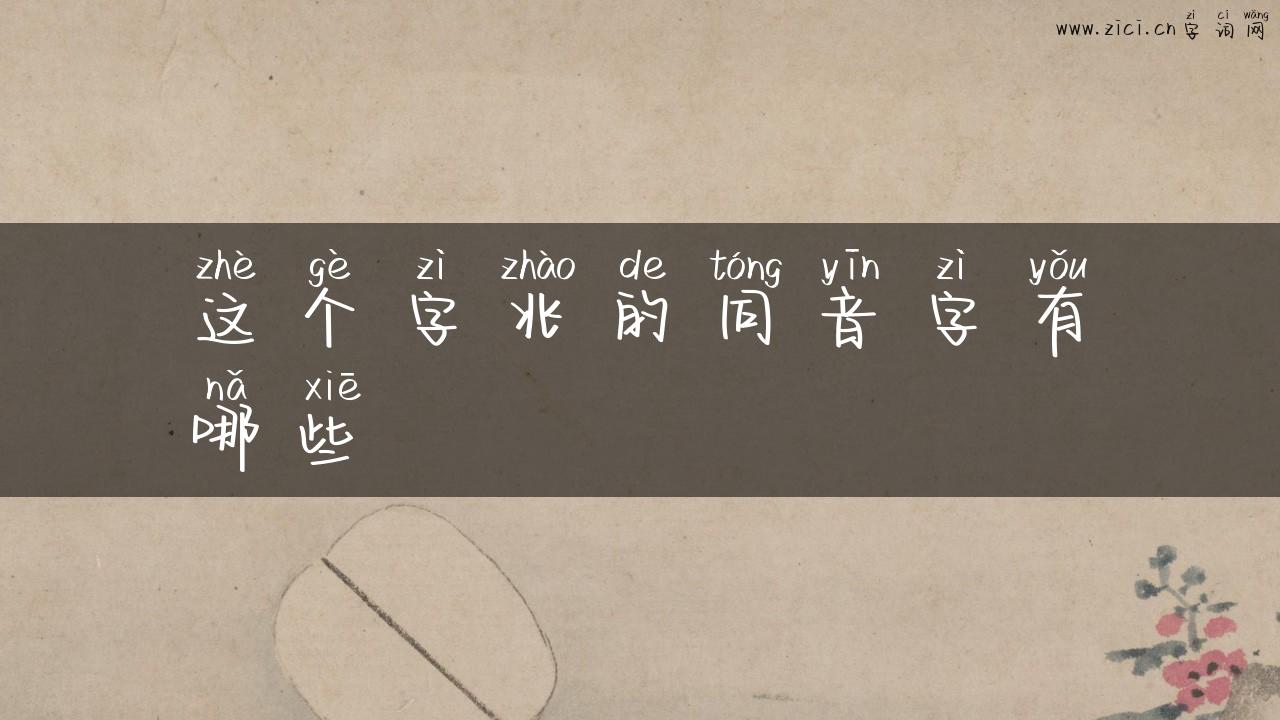 zì cí wǎng
www.zici.cn 字词网
zhè gè zì zhào de tóng yīn zì yǒu
这个字兆的同音字有
nǎ xiē
哪些